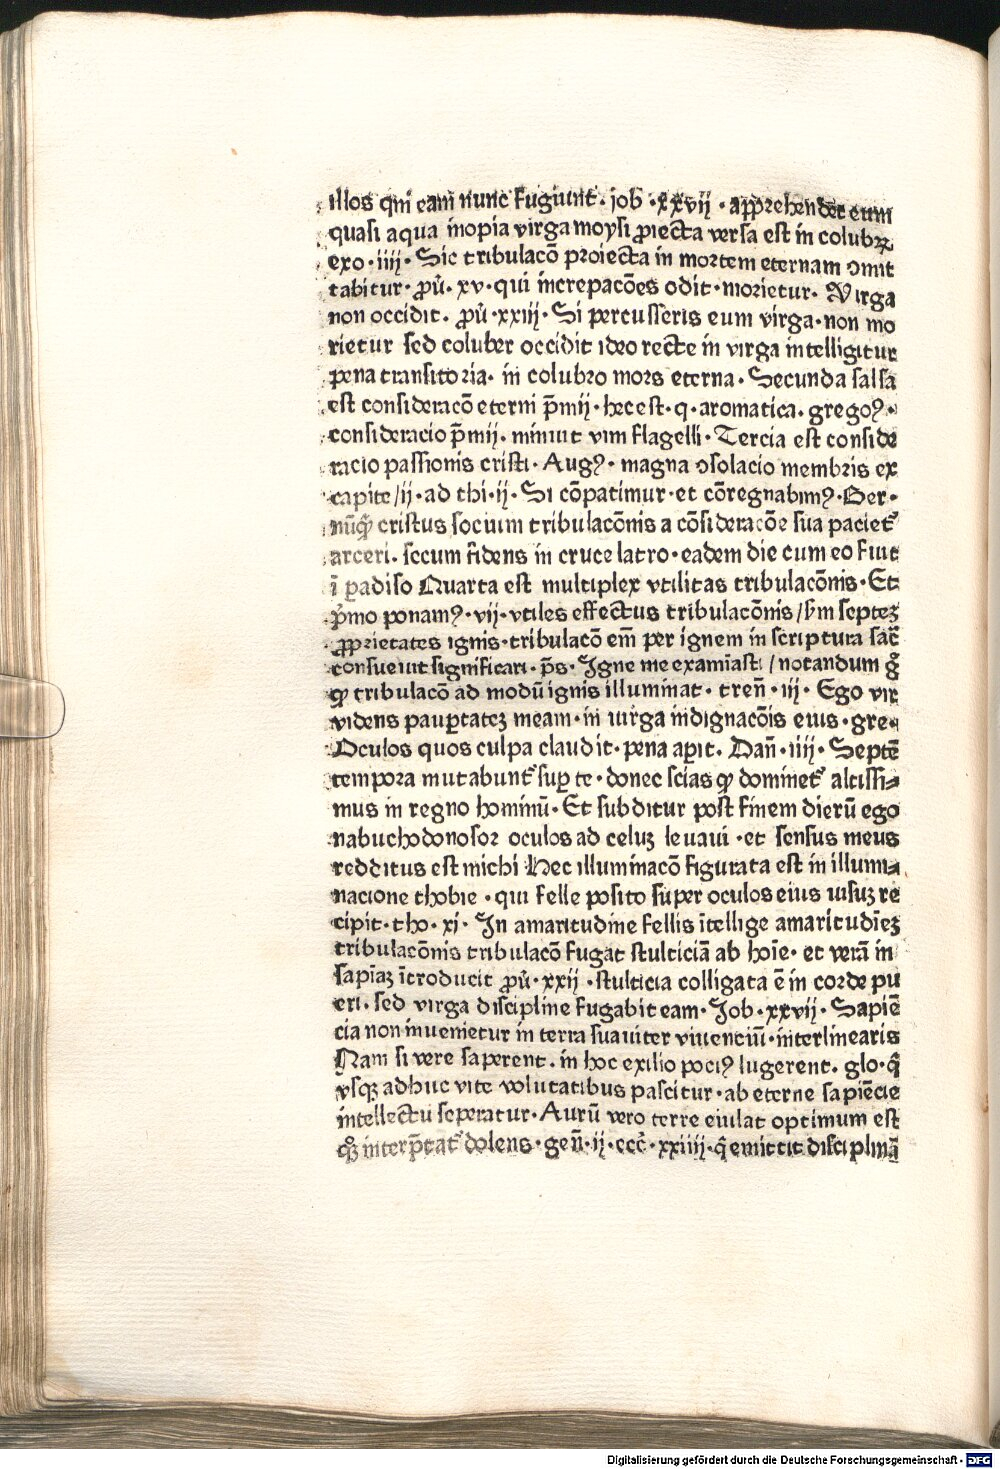 illos qui eam nunc fugiunt · iob · xxvij · apprehendet eum
quasi aqua inopia virga moysi ꝓiecta versa est in colubꝝ
exo · iiij · Sic tribulacō proiecta in mortem eternam ↄmit
tabitur · ꝓū · xv · qui increpacōes odit · morietur · Virga
non occidit · ꝓū · xxiij · Si percusseris eum virga · non mo
rietur sed coluber occidit ideo recte in virga intelligitur
pena transitoria · in colubro mors eterna · Secunda salsa
est consideracō eterni p̄mij · hec est · q · aromatica · gregoꝰ ·
consideracio p̄mij · minuit vim flagelli · Tercia est conside
racio passionis cristi · Augꝰ · magna ↄsolacio membris ex
capite / ij · ad thi · ij · Si cōpatimur · et cōregnabimꝰ · Ber ·
nūq̄ cristus socium tribulacōnis a cōsideracōe sua paciet᷑
arceri · secum ridens in cruce latro · eadem die cum eo fuit
ī ꝑadiso Quarta est multiplex vtilitas tribulacōnis · Et
p̄mo ponamꝰ · vij · vtiles effectus tribulacōnis / s̄m septeꝫ
ꝓprietates ignis · tribulacō em̄ per ignem in scriptura sac̄
consueuit significari · p̄s · Igne me examiasti / notandum g̊
ꝙ tribulacō ad modū ignis illuminat · tren̄ · iij · Ego vir
videns pauꝑtateꝫ meam · in uirga indignacōis eius · gre ·
Oculos quos culpa claudit · pena aꝑit · Dan̄ · iiij · Septē
tempora mutabunt᷑ suꝑ te · donec scias ꝙ dominet᷑ altissi⸗
mus in regno hominū · Et subditur post finem dierū ego
nabuchodonosor oculos ad celuꝫ leuaui · et sensus meus
redditus est michi Hec illuminacō figurata est in illumi⸗
nacione thobie · qui felle posito super oculos eius uisuꝫ re
cipit · tho · xi · In amaritudine fellis ītellige amaritudīeꝫ
tribulacōnis tribulacō fugat stulticiā ab hoīe · et verā in
sapīaꝫ ītroducit ꝓū · xxij · stulticia colligata ē in corde pu
eri · sed virga discipline fugabit eam · Job · xxvij · Sapiē
cia non inuenietur in terra suauiter viuenciū · interlinearis
Nam si vere saperent · in hoc exilio pociꝰ lugerent · glo · q̄
vsqꝫ adhuc vite volutatibus pascitur · ab eterne sapiēcie
intellectu seperatur · Aurū vero terre eiulat optimum est
interp̄tat᷑ dolens · gen̄ · ij · ecc̄ · xxiiij · q̄ emittit disciplinā
Digitalisierung gefördert durch die Deutsche Forschungsgemeinschaft - DFG